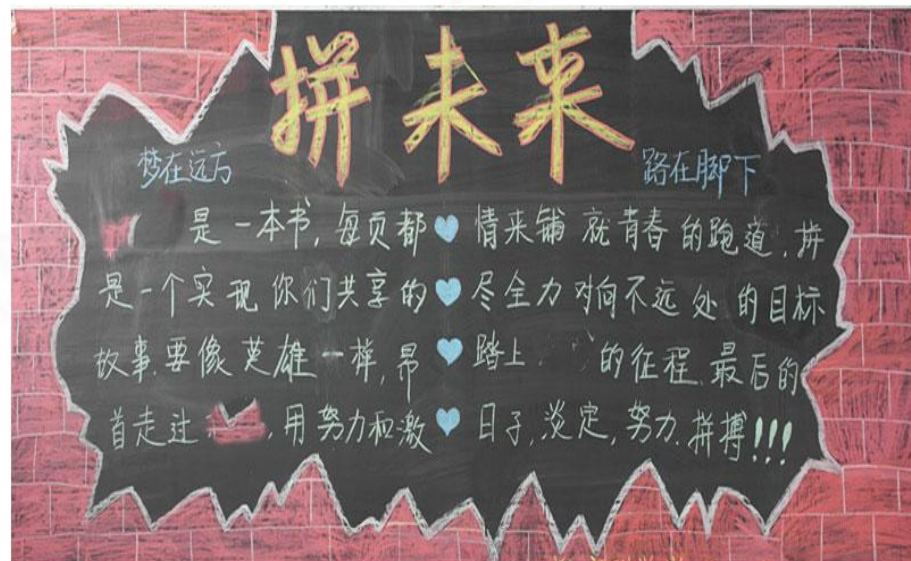 拼未来
梦在远方
路在脚下
是一本书,每页都
是一个实现你们共享的
故事.要像英雄一样,昂
首走过,用努力和激
情来铺就青春的跑道,拼
尽全力对向不远处的目标
踏上的征程.最后的
日子,淡定,努力.拼搏!!!